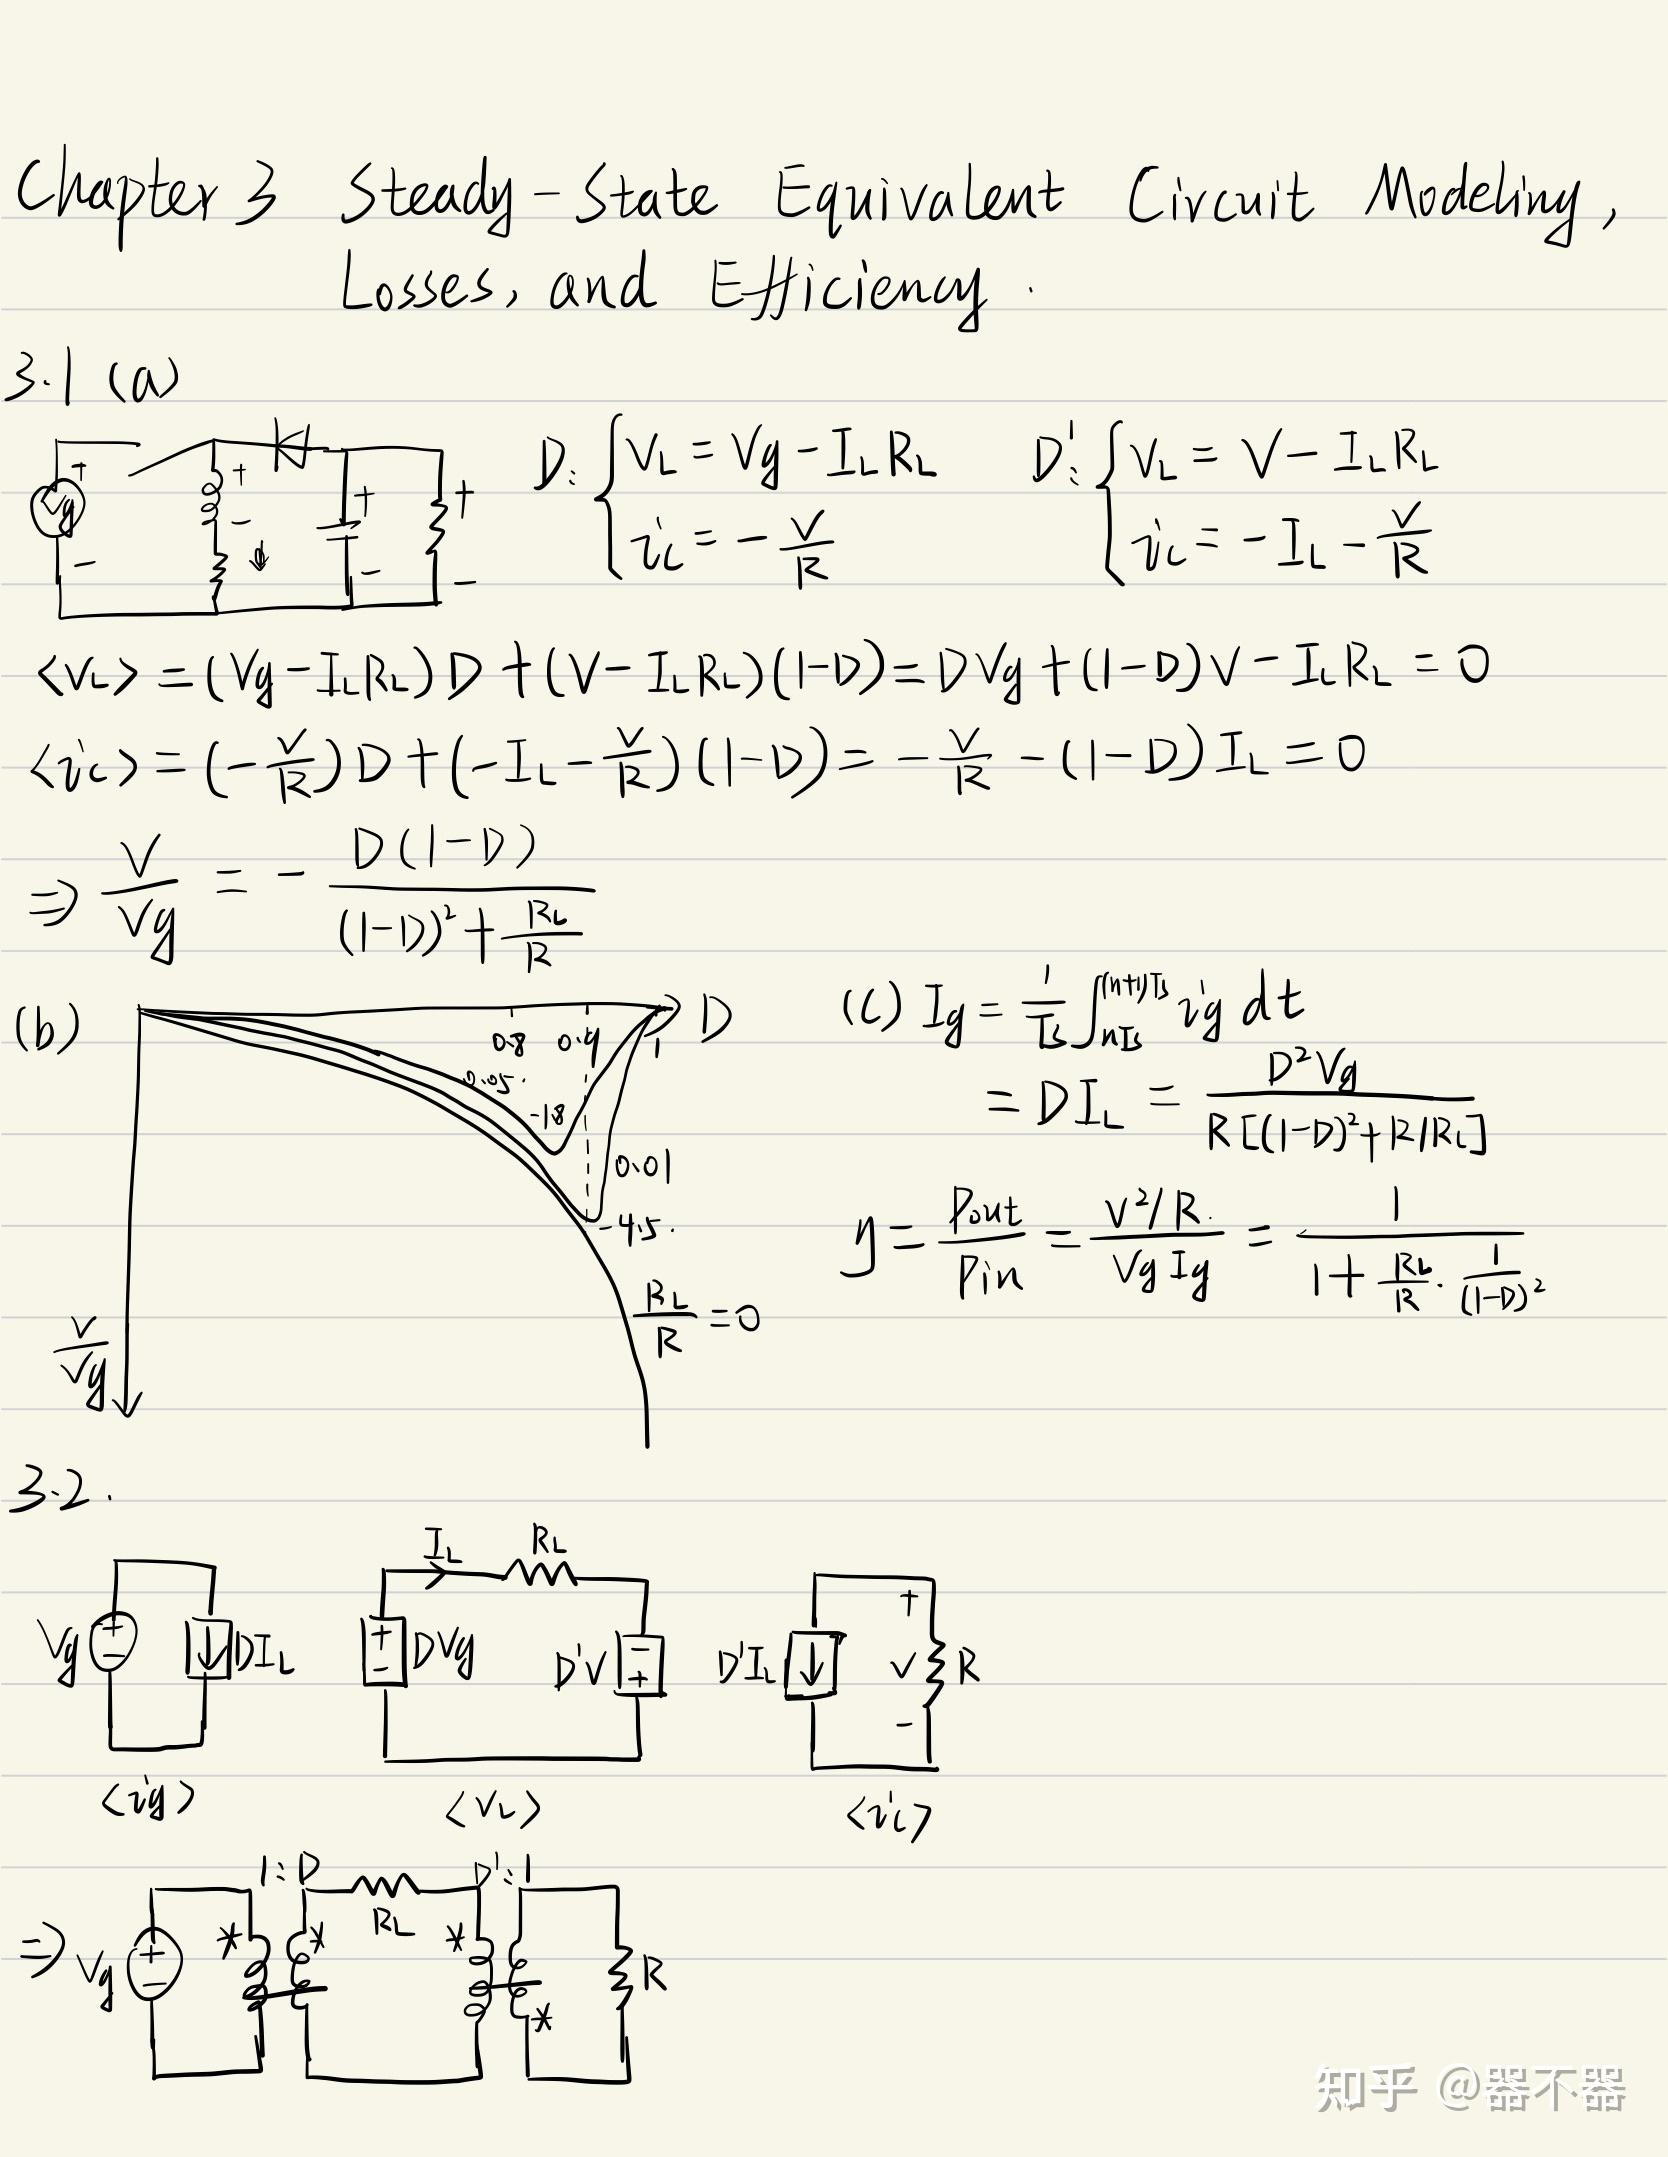 Chapter 3 Steady-State Equivalent Circuit Modeling,
Losses, and Efficiency.
3.1 (a)
+ Vg - + - + - + -
D: { VL = Vg - ILRL
ic = - V/R
D': { VL = V - ILRL
ic = -IL - V/R
<VL> = (Vg-ILRL)D + (V-ILRL)(1-D) = DVg + (1-D)V - ILRL = 0
<ic> = (-V/R)D + (-IL-V/R)(1-D) = -V/R - (1-D)IL = 0
⇒ V/Vg = - D(1-D) / ((1-D)² + RL/R)
(b)
D
0.8 0.9 1
0.05
-1.8
0.01
-4.5
RL/R = 0
V/Vg
(c) Ig = 1/Ts ∫nTs^(n+1)Ts ig dt
= DIL = D²Vg / R[(1-D)²+R/RL]
η = Pout/Pin = V²/R / VgIg = 1 / (1 + RL/R · 1/(1-D)²)
3.2.
Vg + - DIL
IL RL
+ - DVg D'V - +
D'IL + V - R
<ig> <VL> <ic>
1:D RL D':1
⇒ Vg + - * * * * R
知乎 @器不器